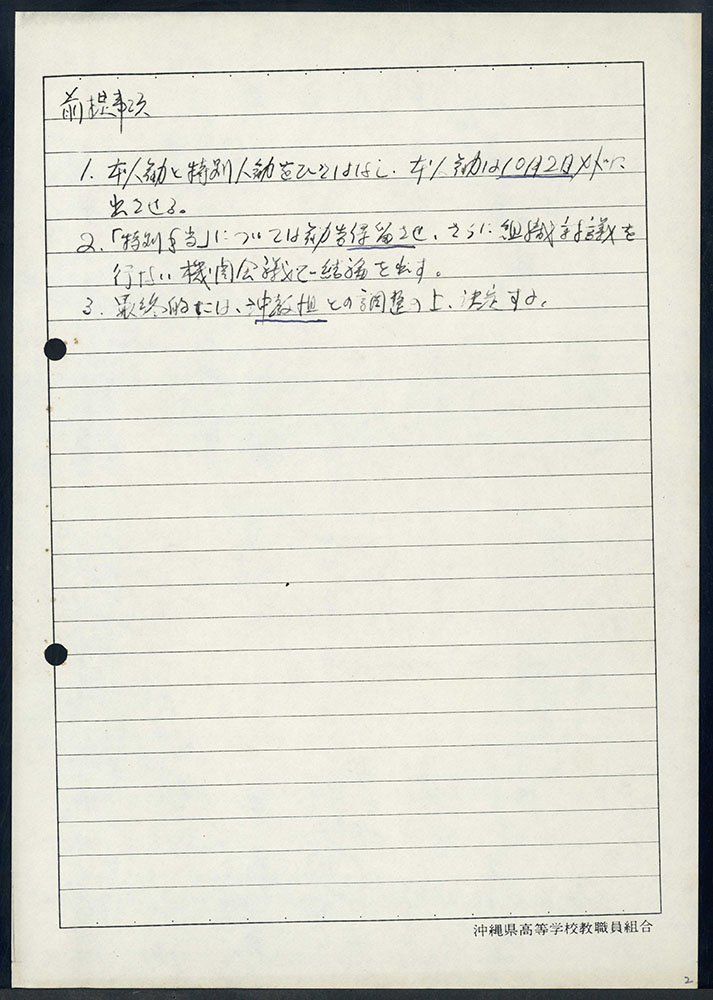 前提事項
1. 本人勧と特別人勧をひきはなし、本人勧は10月2日メドに
出させる。
2.「特別手当」については勧告保留させ、さらに組織討議を
行ない機関会議で結論を出す。
3. 最終的には、沖教組との調整の上、決定する。
沖縄県高等学校教職員組合
2